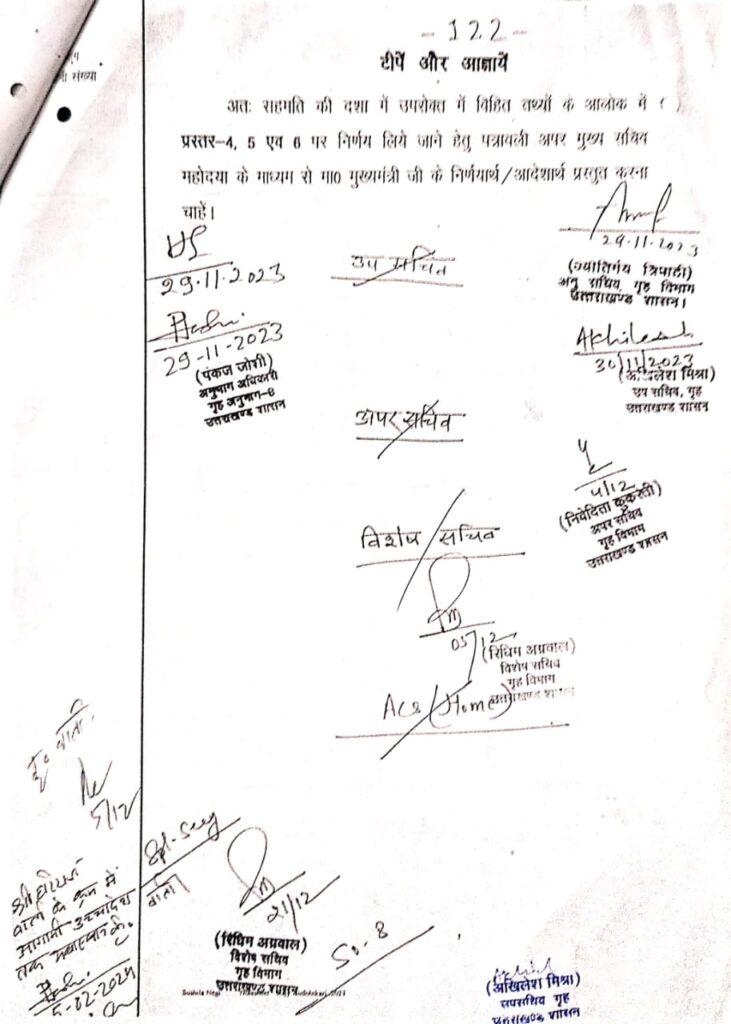 - 122 -
टीपें और आज्ञायें
संख्या
अतः सहमति की दशा में उपरोक्त में विहित तथ्यों के आलोक में ( )
प्रस्तर-4, 5 एवं 6 पर निर्णय लिये जाने हेतु पत्रावली अपर मुख्य सचिव
महोदया के माध्यम से मा0 मुख्यमंत्री जी के निर्णयार्थ/आदेशार्थ प्रस्तुत करना
चाहें।
29.11.2023
उप सचिव
29.11.2023
(ज्योतिर्मय त्रिपाठी)
अनु सचिव, गृह विभाग
उत्तराखण्ड शासन।
29-11-2023
(पंकज जोशी)
अनुभाग अधिकारी
गृह अनुभाग-8
उत्तराखण्ड शासन
Akhilesh
30/11/2023
(अखिलेश मिश्रा)
उप सचिव, गृह
उत्तराखण्ड शासन
अपर सचिव
4/12
(निवेदिता कुकरेती)
अपर सचिव
गृह विभाग
उत्तराखण्ड शासन
विशेष सचिव
05/12
(रिधिम अग्रवाल)
विशेष सचिव
गृह विभाग
उत्तराखण्ड शासन
ACS (Home)
वार्ता
5/12
Spl-Secy
वार्ता
21/12
(रिधिम अग्रवाल)
विशेष सचिव
गृह विभाग
उत्तराखण्ड शासन
SO-8
वार्ता के क्रम में
आगामी उच्चादेश
तक
5-02-2024
Sushila Negi
(अखिलेश मिश्रा)
उपसचिव गृह
उत्तराखण्ड शासन